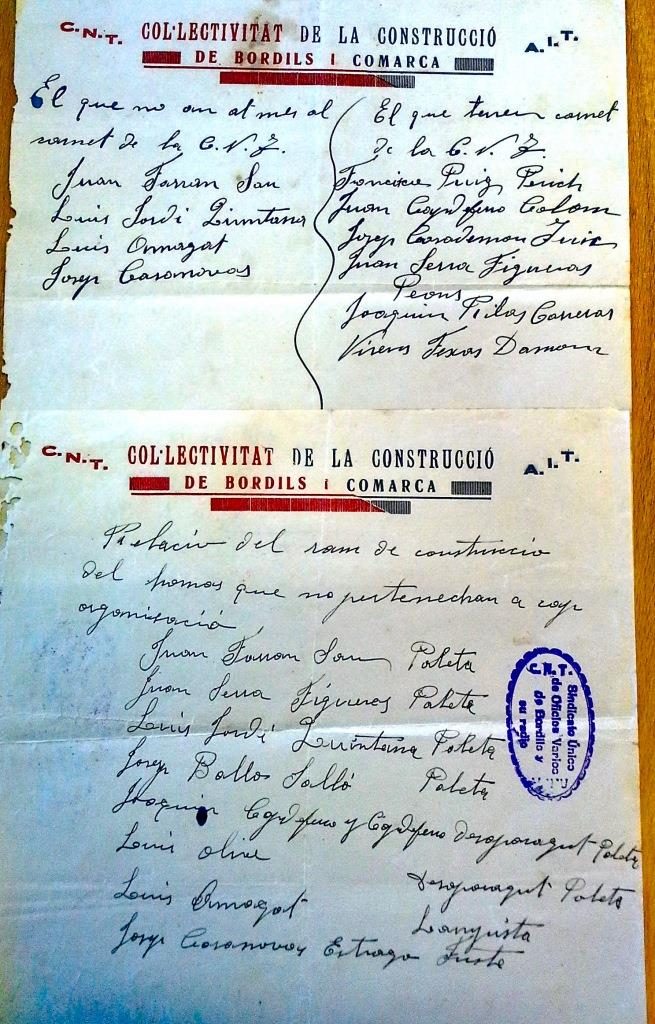 C.N.T. COL·LECTIVITAT DE LA CONSTRUCCIÓ A.I.T.
DE BORDILS I COMARCA
El que no an at mes al
carnet de la C.N.T.
Juan Farran Sau
Luis Jordi Quintana
Luis Amagat
Josep Casanovas
El que tenen carnet
de la C.N.T.
Puig Perich
Juan Colom
Josep Casademon
Juan Serra Figueras
Peons
Joaquin Carreras
C.N.T. COL·LECTIVITAT DE LA CONSTRUCCIÓ A.I.T.
DE BORDILS I COMARCA
Relacio del ram de construccio
del homas que no pertenechan a cap
organisació
Juan Farran Sau Paleta
Juan Serra Figueras Paleta
Luis Jordi Quintana Paleta
Josep Ballos Salló Paleta
Joaquin y Desaparagut Paleta
Luis Olive Desaparagut Paleta
Luis Amagat Lampista
Josep Casanovas Estrago Fuste
C.N.T.
Sindicato Único
de Oficios Varios
de Bordils y
su radio